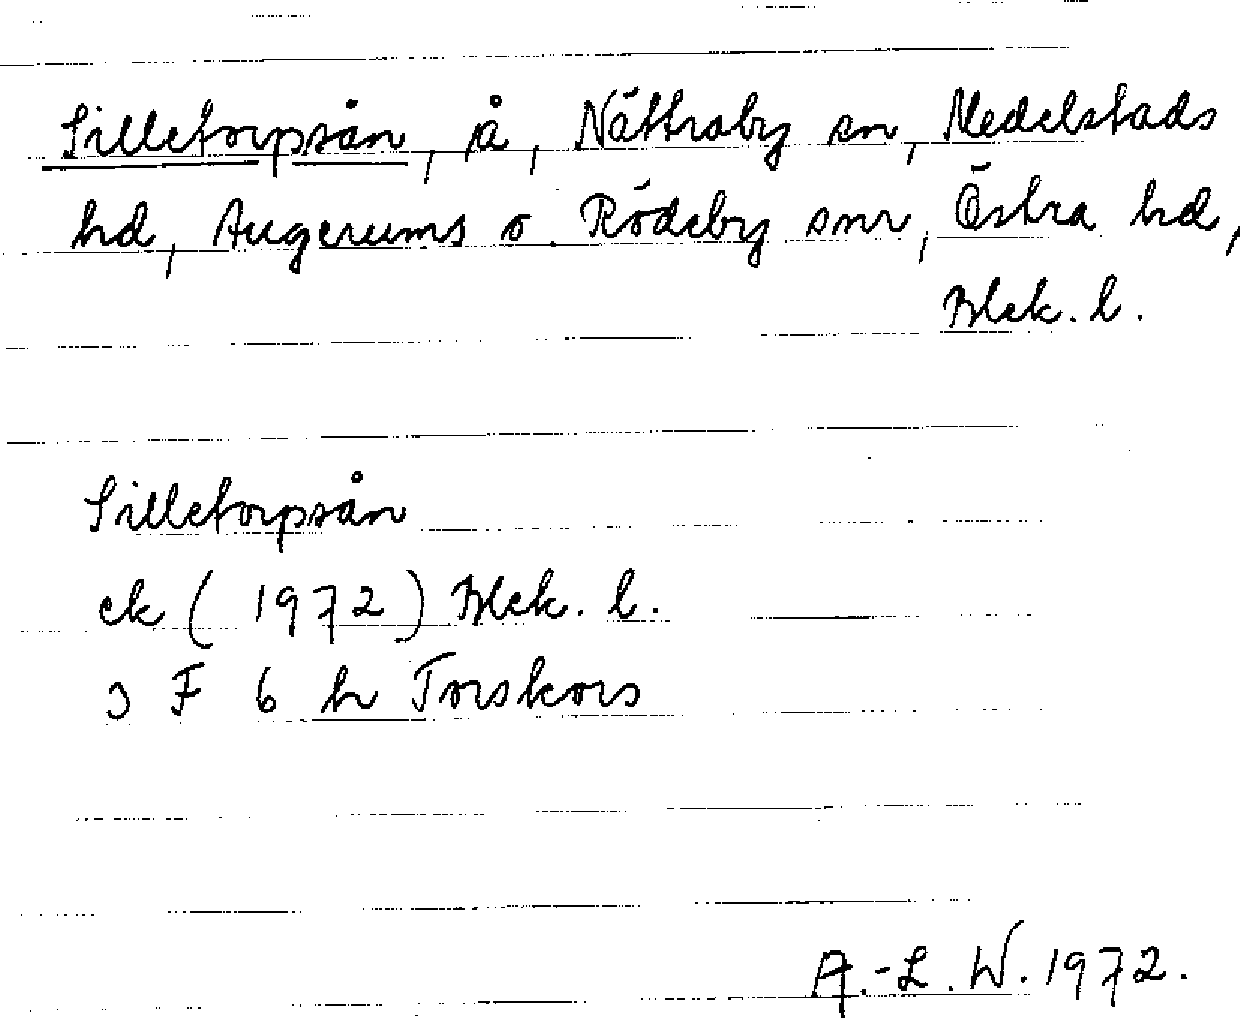 Silletorpsån, å, Nättraby sn, Medelstads
hd, Augerums o. Rödeby snr, Östra hd,
Blek. l.
Silletorpsån
ek (1972) Blek. l.
3 F 6 h Torskors
A.-L. W. 1972.